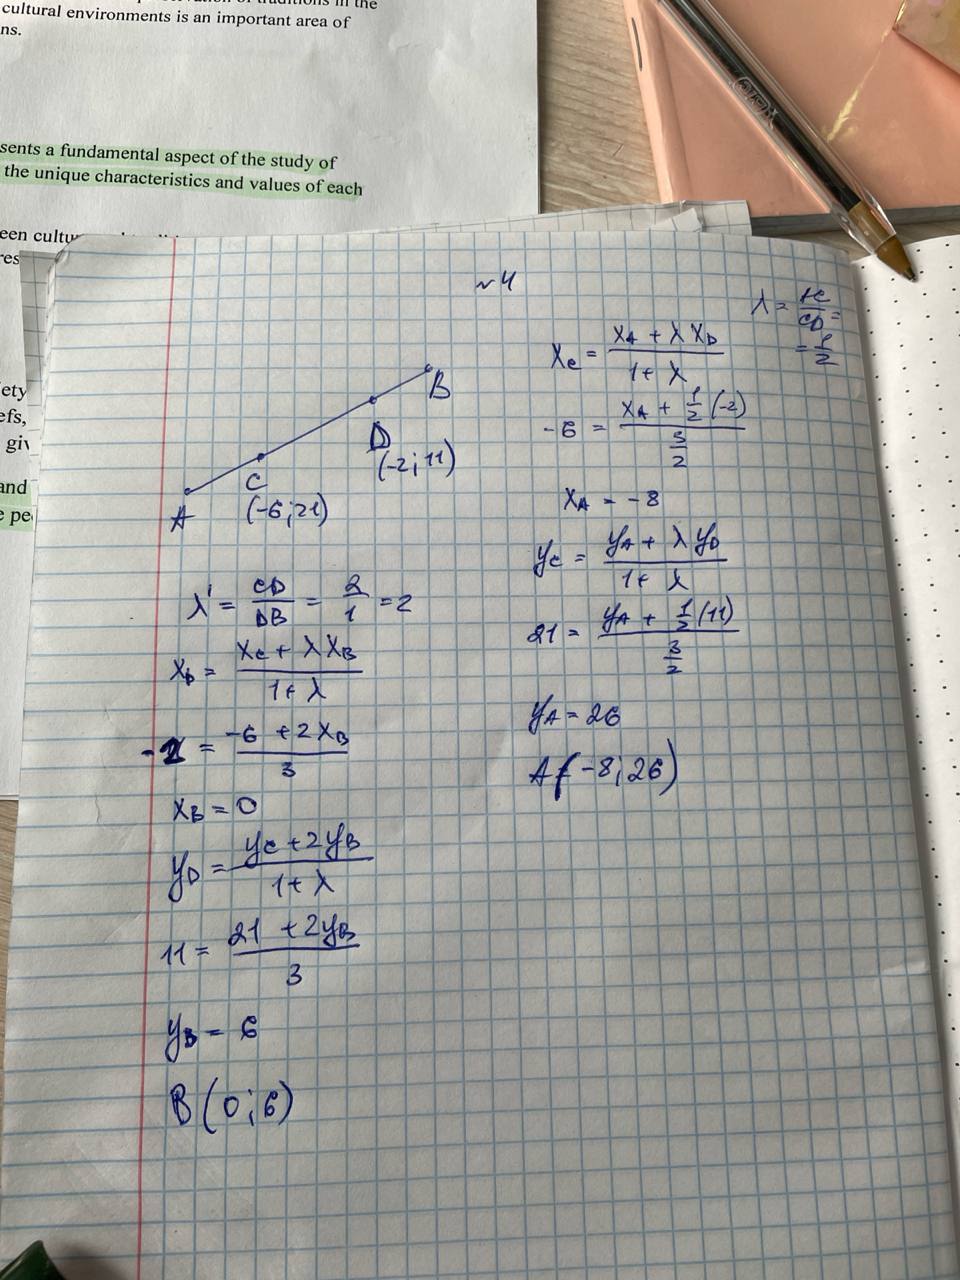 cultural environments is an important area of
ns.
sents a fundamental aspect of the study of
the unique characteristics and values of each
een
res
ety
efs,
giv
and
e pe
~ 4
λ = AC/CD =
= 1/2
A
C
(-6; 21)
D
(-2; 11)
B
λ' = CD/DB = 2/1 = 2
x_D = (x_C + λ x_B)/(1 + λ)
-2 = (-6 + 2x_B)/3
x_B = 0
y_D = (y_C + 2y_B)/(1 + λ)
11 = (21 + 2y_B)/3
y_B = 6
B (0; 6)
x_C = (x_A + λ x_D)/(1 + λ)
-6 = (x_A + 1/2 (-2))/(3/2)
x_A = -8
y_C = (y_A + λ y_D)/(1 + λ)
21 = (y_A + 1/2 (11))/(3/2)
y_A = 26
A (-8; 26)